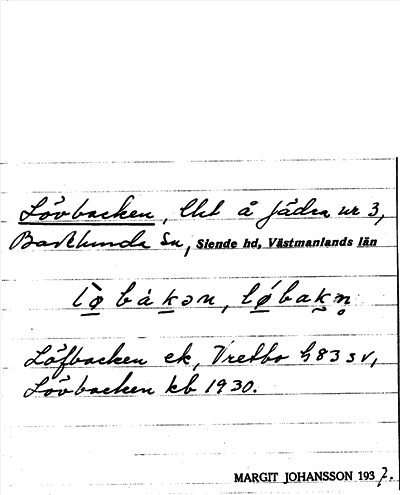 Lövbacken, lht å Jädra nr 3,
Badelunda sn, Siende hd, Västmanlands län
lø̀bàkən, lǿbakn̥
Löfbacken ek, Vretbo h 83 sv,
Lövbacken kb 1930.
MARGIT JOHANSSON 1937.